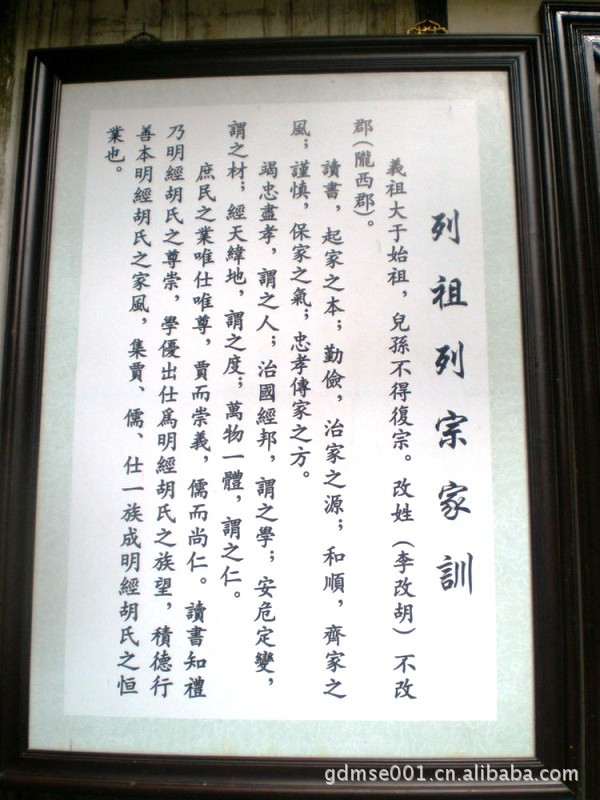 列祖列宗家訓
義祖大于始祖，兒孫不得復宗。改姓（李改胡）不改
郡（隴西郡）。
讀書，起家之本；勤儉，治家之源；和順，齊家之
風；謹慎，保家之氣；忠孝傳家之方。
竭忠盡孝，謂之人；治國經邦，謂之學；安危定變，
謂之材；經天緯地，謂之度；萬物一體，謂之仁。
庶民之業唯仕唯尊，賈而崇義，儒而尚仁。讀書知禮
乃明經胡氏之尊崇，學優出仕爲明經胡氏之族望，積德行
善本明經胡氏之家風，集賈、儒、仕一族成明經胡氏之恒
業也。
gdmse001.cn.alibaba.com